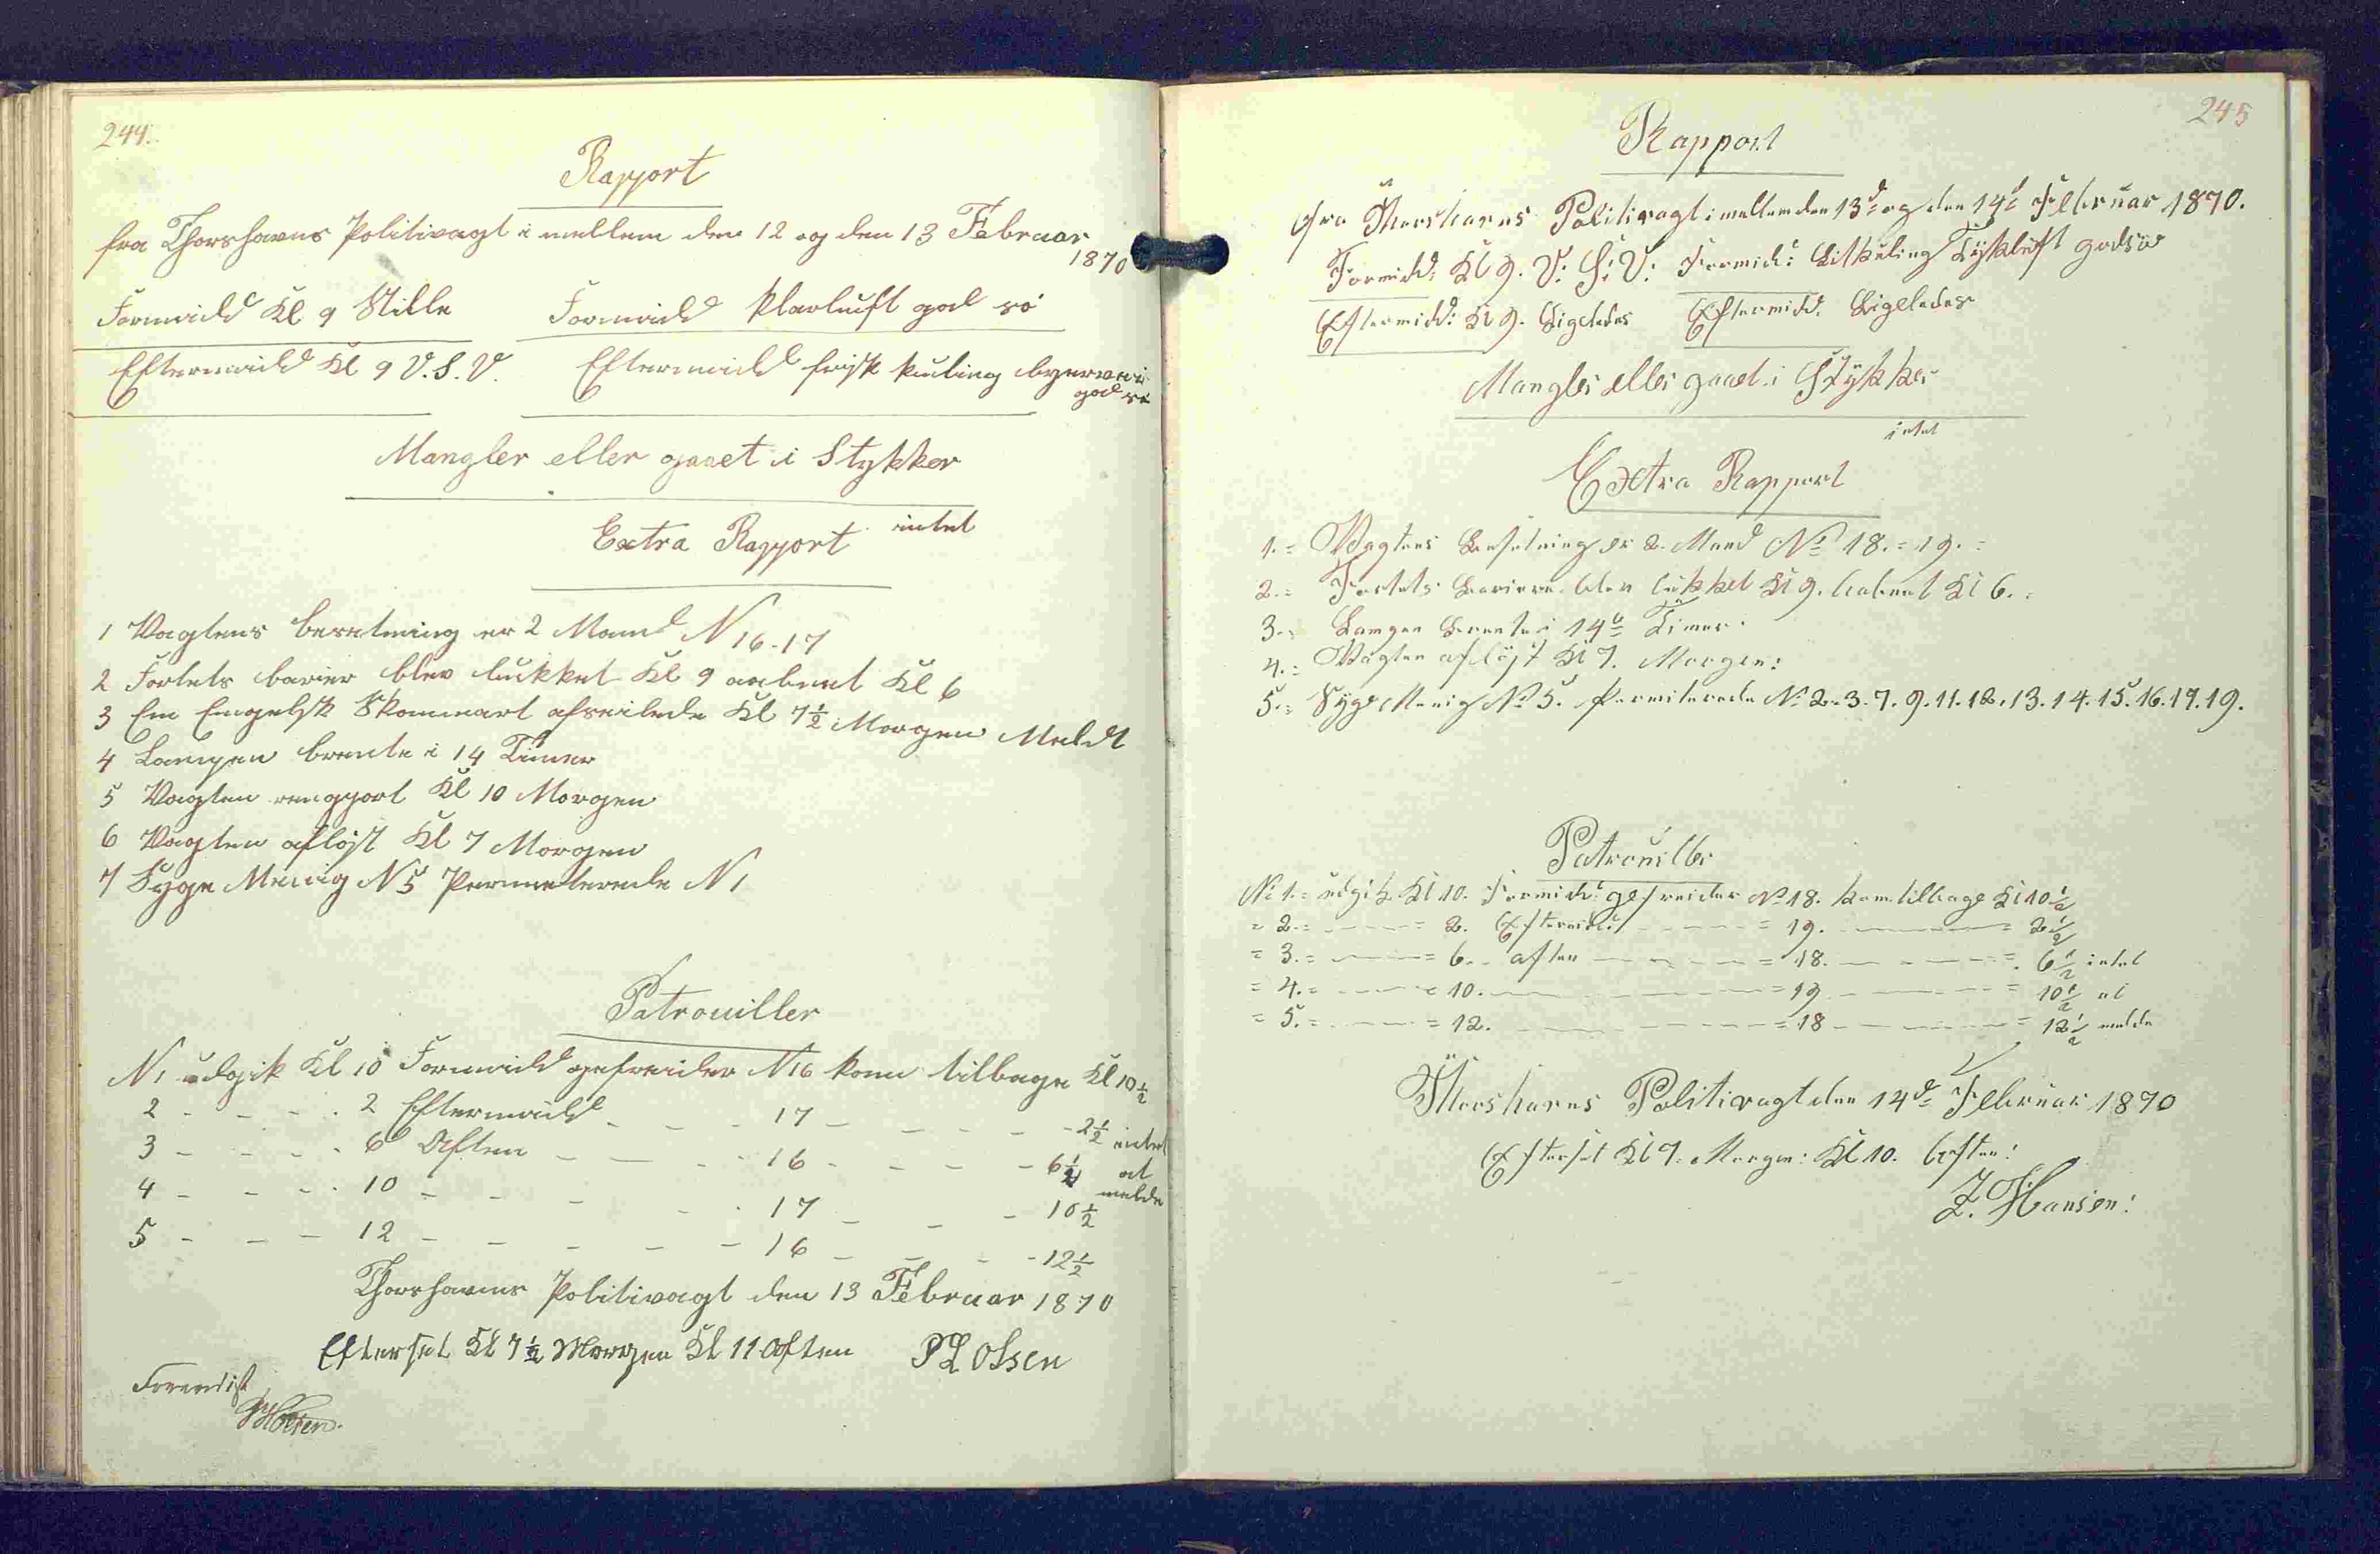 244.
Rapport
fra Thorshavns Politivagt i mellem den 12 og den 13 Februar
1870
Formidd Kl 9 Stille Formidd klarluft god sö
Eftermidd Kl 9 V.S.V. Eftermidd frisk kuling
god sö
Mangler eller gaaet i Stykker
intet
Extra Rapport
1 Vagtens besetning er 2 Mand N 16-17
2 Fortets barier blev lukket Kl 9 aabnet Kl 6
3 Em Engelsk Skonnart afseilede Kl 7½ Morgen Meldt
4 Lampen brente i 14 Timer
5 Vagten rengjort Kl 10 Morgen
6 Vagten aflöjst Kl 7 Morgen
7 Syge Menig N 5 Permeterede N 1
Patrouiller
N 1 udgik Kl 10 Formidd gefreider N 16 kom tilbage Kl 10½
2 - - - - 2 Eftermidd - - - 17 - - - - - 2½ intet
3 - - - - 6 Aften - - - - 16 - - - - 6½ at
melde
4 - - - - 10 - - - - - 17 - - - 10½
5 - - - 12 - - - - - 16 - - - - 12½
Thorshavns Politivagt den 13 Februar 1870
Efterset Kl 7½ Morgen Kl 11 Aften P L Olsen
Forevist
245
Rapport
fra Thorshavns Politivagt i mellem den 13d og den 14d Februar 1870.
Formidd: Kl 9. V: S: V: Formidd: Litkuling Tykluft godsö
Eftermidd: Kl 9. Ligeledes Eftermidd. Ligeledes
Mangler eller gaaet i Stykker
intet
Extra Rapport
1.= Vagtens Besetning er 2. Mand No 18.=19.=
2.= Fortets Bariere blev lukket Kl 9. aabnet Kl 6.
3.= Lampen Brente i 14 Timer.
4.= Vagten aflöjst Kl 7. Morgen:
5.= Syge Menig No 5. Permiterede No 2.3.7.9.11.12.13.14.15.16.17.19.
Patrouiller
No 1.= udgik Kl 10. Formidd: gefreider No 18. kom tilbage Kl 10½
= 2.= - - = 2. Eftermidd: - - = 19. - - = 2½
= 3.= - - = 6. aften - - = 18. - - = 6½ intet
= 4.= - - = 10. - - = 19 - - = 10½ at
= 5.= - - = 12. - - = 18 - - = 12½ melde
Thorshavns Politivagt den 14d= Februar 1870
Efterset Kl 7. Morgen: Kl 10. Aften:
Z. Hansen: